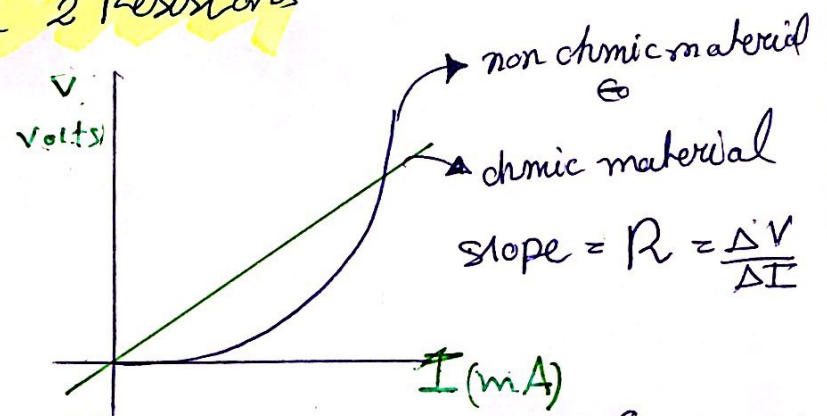 2 Resistors
V
Volts
non ohmic material
ohmic material
slope = R = ΔV/ΔI
I (mA)